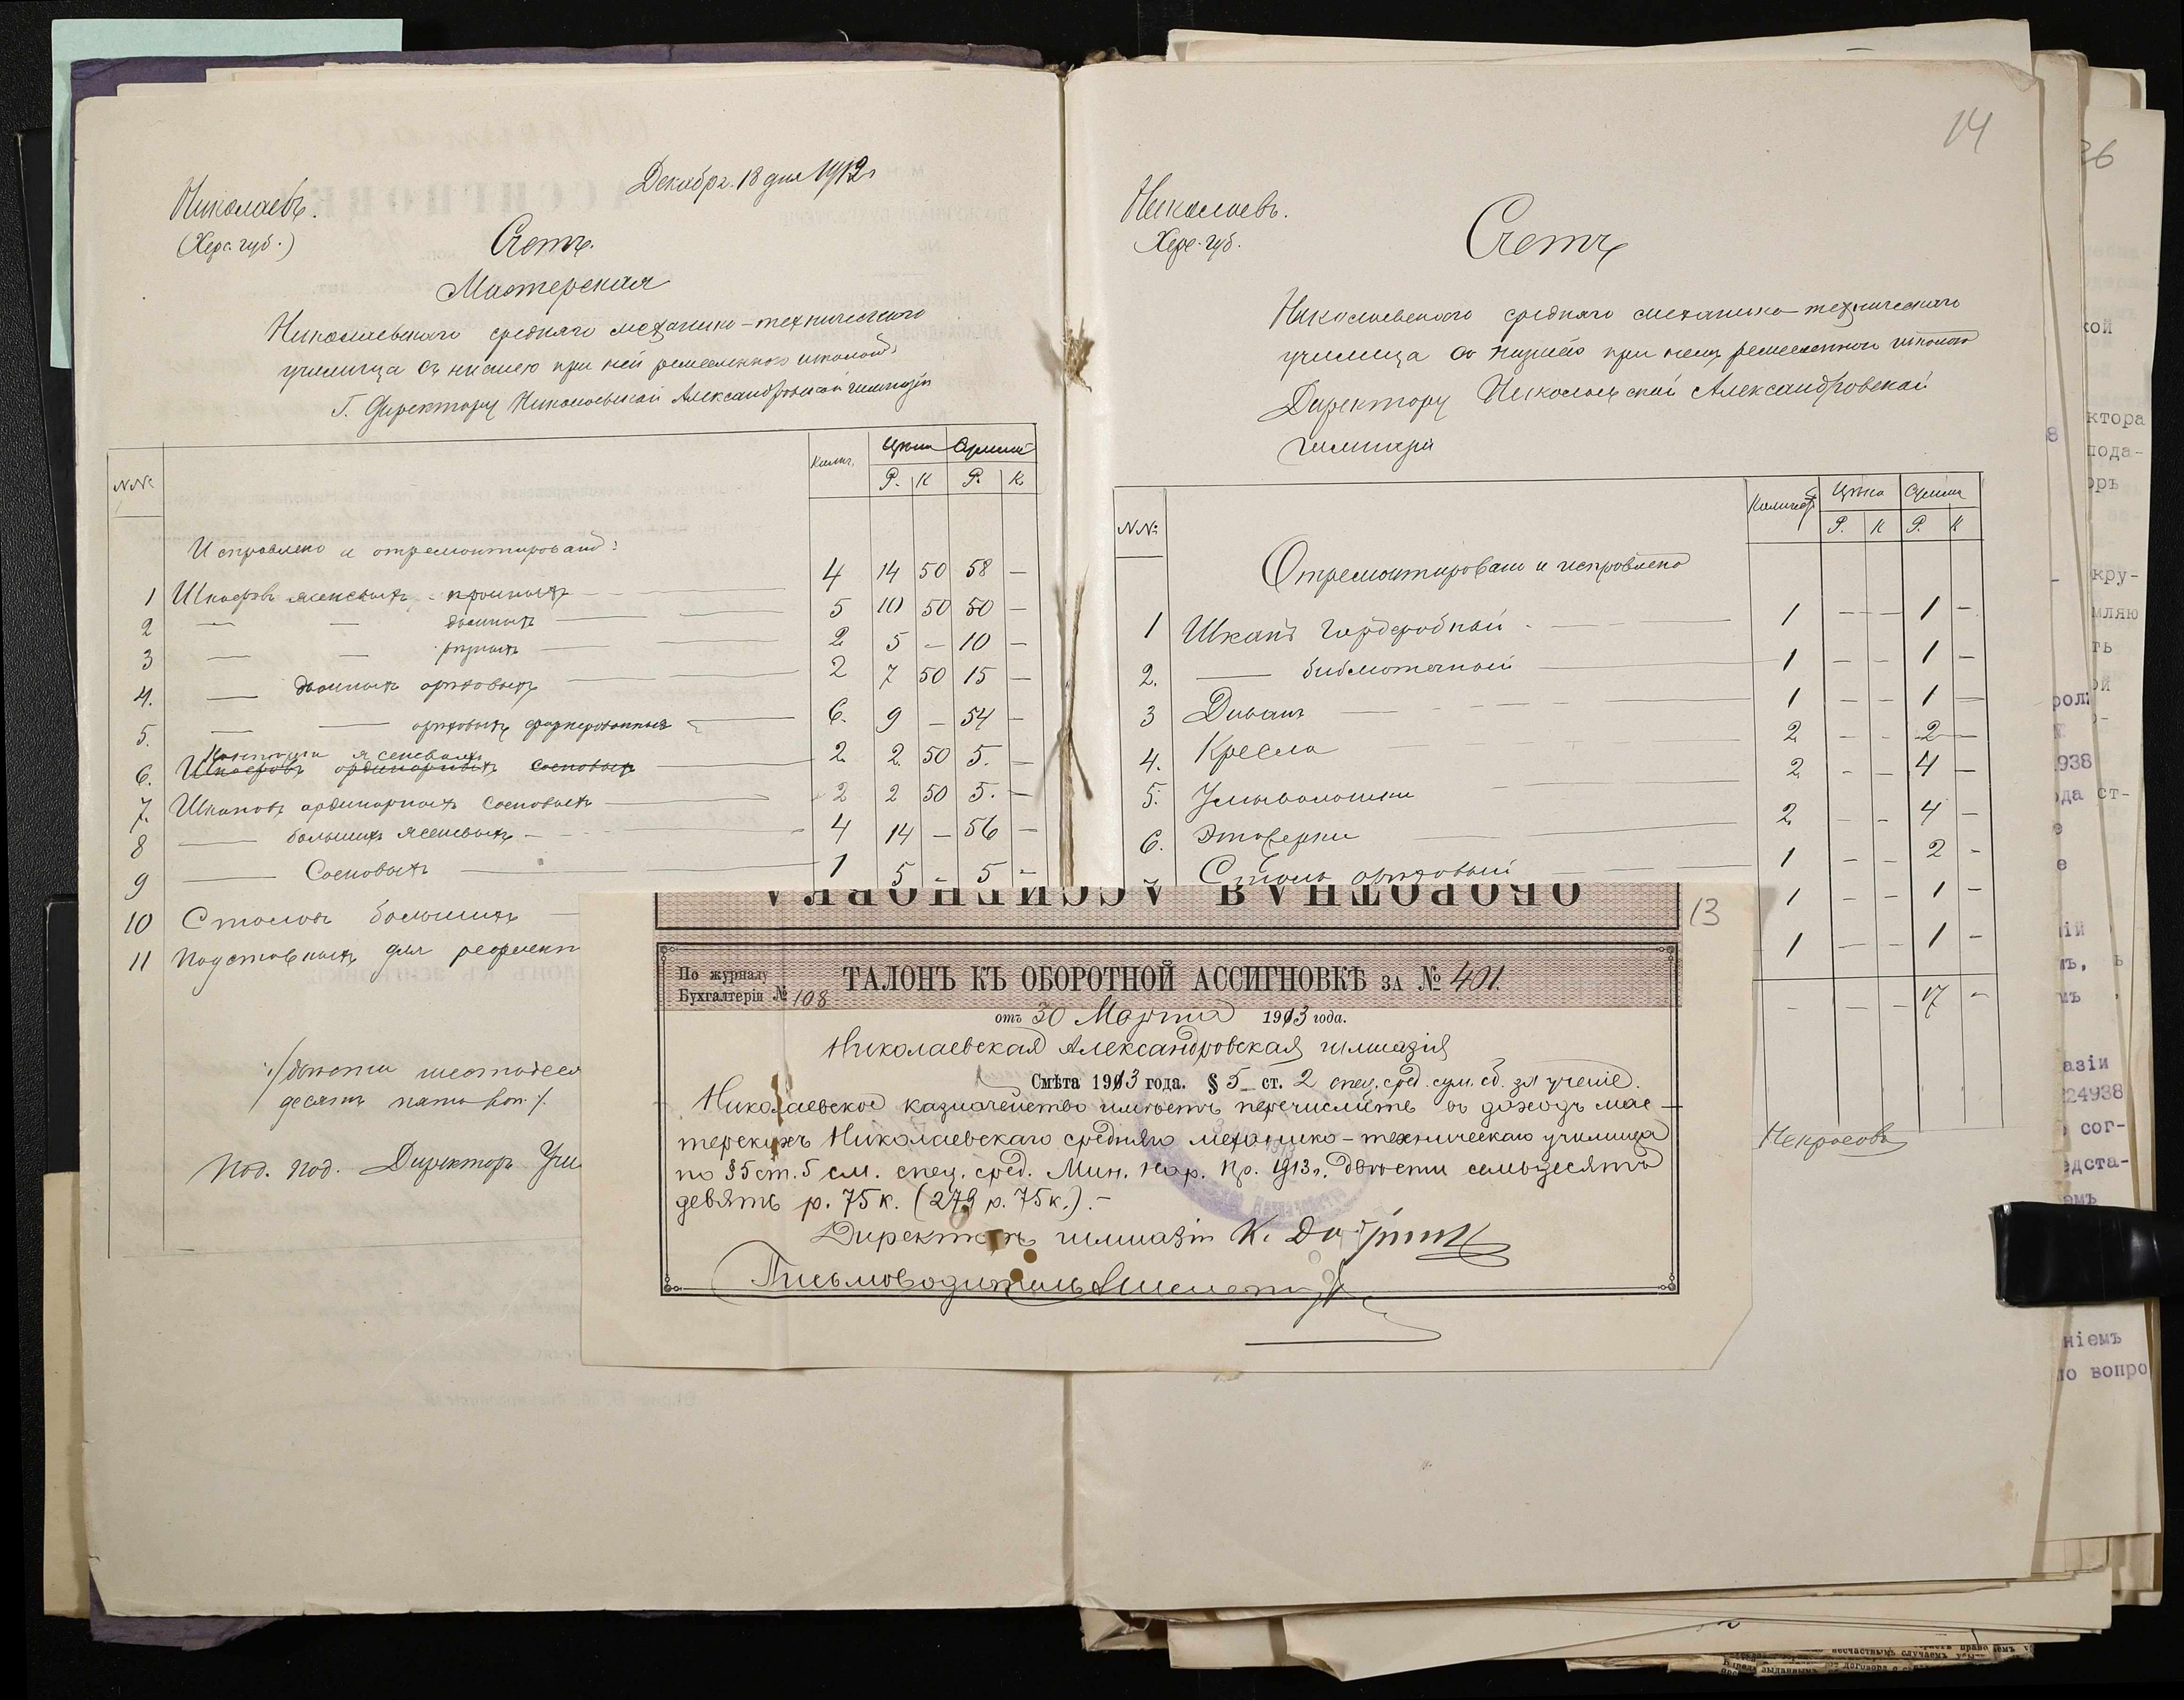 Декабря 18 дня 1912 г
Николаевъ.
(Хер. губ.)
Счетъ.
Мастерская
Николаевскаго средняго механико-техническаго
училища съ низшею при ней ремесленною школою
Г. Директору Николаевской Александровской гимназіи
№№ Колич. Цѣна Сумма
Р. К Р. К.
Исправлено и отремонтировано:
1 Шкафовъ ясеневыхъ 4 14 50 58 —
2 — — 5 10 50 50 —
3 — — 2 5 — 10 —
4. — орѣховыхъ 2 7 50 15 —
5. — орѣховыхъ 6. 9 — 54 —
ясеневыхъ
6. Шкафовъ ординарныхъ сосновыхъ 2 2 50 5. —
7. Шкаповъ ординарныхъ сосновыхъ 2 2 50 5. —
8 — большихъ ясеневыхъ — 4 14 — 56 —
9 — Сосновыхъ 1 5 — 5 —
10 Столовъ большихъ
11 для
десять пять коп.
Под. под. Директоръ Учи
14
Николаевъ.
Хер. губ.
Счетъ
Николаевского средняго механико-техническаго
училища съ низшею при немъ ремесленною школою
Директору Николаевской Александровской
гимназіи
№№ Количест Цѣна Сумма
Р. К Р. К
Отремонтировано и исправлено
1 Шкапъ гардеробный 1 — — 1 —
2. — библіотечный 1 — — 1 —
3 Диванъ 1 — — 1 —
4. Кресла 2 — — 2 —
5. Умывальники 2 — — 4 —
6. Этажерки 2 — — 4 —
Столъ орѣховый 1 — — 2 —
1 — — 1 —
1 — — 1 —
— — — 17 —
Некрасовъ
ОБОРОТНАЯ АССИГНОВКА
13
По журналу
Бухгалтеріи № 108
ТАЛОНЪ КЪ ОБОРОТНОЙ АССИГНОВКѢ ЗА № 401.
отъ 30 Марта 1913 года.
Николаевская Александровская гимназія
Смѣта 1913 года. § 5 ст. 2 спец. сред. сум. сб. за ученіе.
Николаевское казначейство имѣетъ перечислить въ доходъ мас-
терскихъ Николаевскаго средняго механико-техническаго училища
по § 5 ст. 5 см. спец. сред. Мин. Нар. Пр. 1913 г. двѣсти семьдесятъ
девять р. 75 к. (279 р. 75 к.).-
Директоръ гимназіи К.
Письмоводитель
36
кой
ктора
пода-
оръ
кру-
мляю
938
ст-
азіи
24938
сог-
едста-
емъ
ніемъ
по вопро
несчастнымъ случаемъ
договора